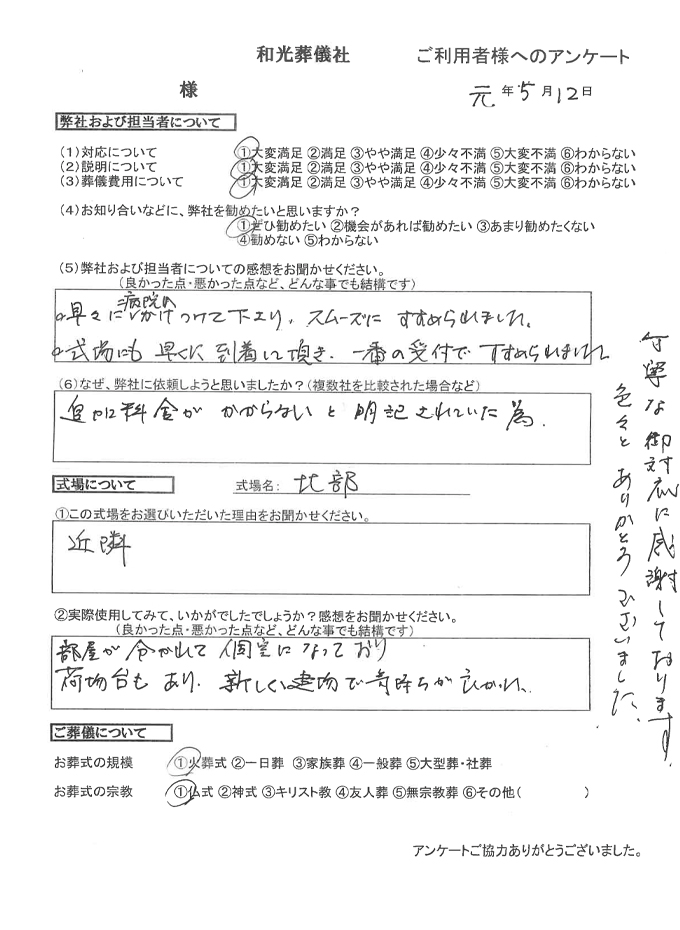 和光葬儀社 ご利用者様へのアンケート
様 元年5月12日
弊社および担当者について
(1)対応について ①大変満足 ②満足 ③やや満足 ④少々不満 ⑤大変不満 ⑥わからない
(2)説明について ①大変満足 ②満足 ③やや満足 ④少々不満 ⑤大変不満 ⑥わからない
(3)葬儀費用について ①大変満足 ②満足 ③やや満足 ④少々不満 ⑤大変不満 ⑥わからない
(4)お知り合いなどに、弊社を勧めたいと思いますか?
①ぜひ勧めたい ②機会があれば勧めたい ③あまり勧めたくない
④勧めない ⑤わからない
(5)弊社および担当者についての感想をお聞かせください。
(良かった点・悪かった点など、どんな事でも結構です)
病院へ
早々にかけつけて下さり、スムーズにすすめられました。
式場にも早くに到着して頂き、一番の受付ですすめられました
(6)なぜ、弊社に依頼しようと思いましたか?(複数社を比較された場合など)
料金がかからないと明記されていた為。
式場について 式場名: 北部
①この式場をお選びいただいた理由をお聞かせください。
近隣
②実際使用してみて、いかがでしたでしょうか?感想をお聞かせください。
(良かった点・悪かった点など、どんな事でも結構です)
部屋が分かれて個室になっており
あり、新しい建物で気持ちが良かった。
ご葬儀について
お葬式の規模 ①火葬式 ②一日葬 ③家族葬 ④一般葬 ⑤大型葬・社葬
お葬式の宗教 ①仏式 ②神式 ③キリスト教 ④友人葬 ⑤無宗教葬 ⑥その他( )
アンケートご協力ありがとうございました。
丁寧な御対応に感謝しております。
色々とありがとうございました。